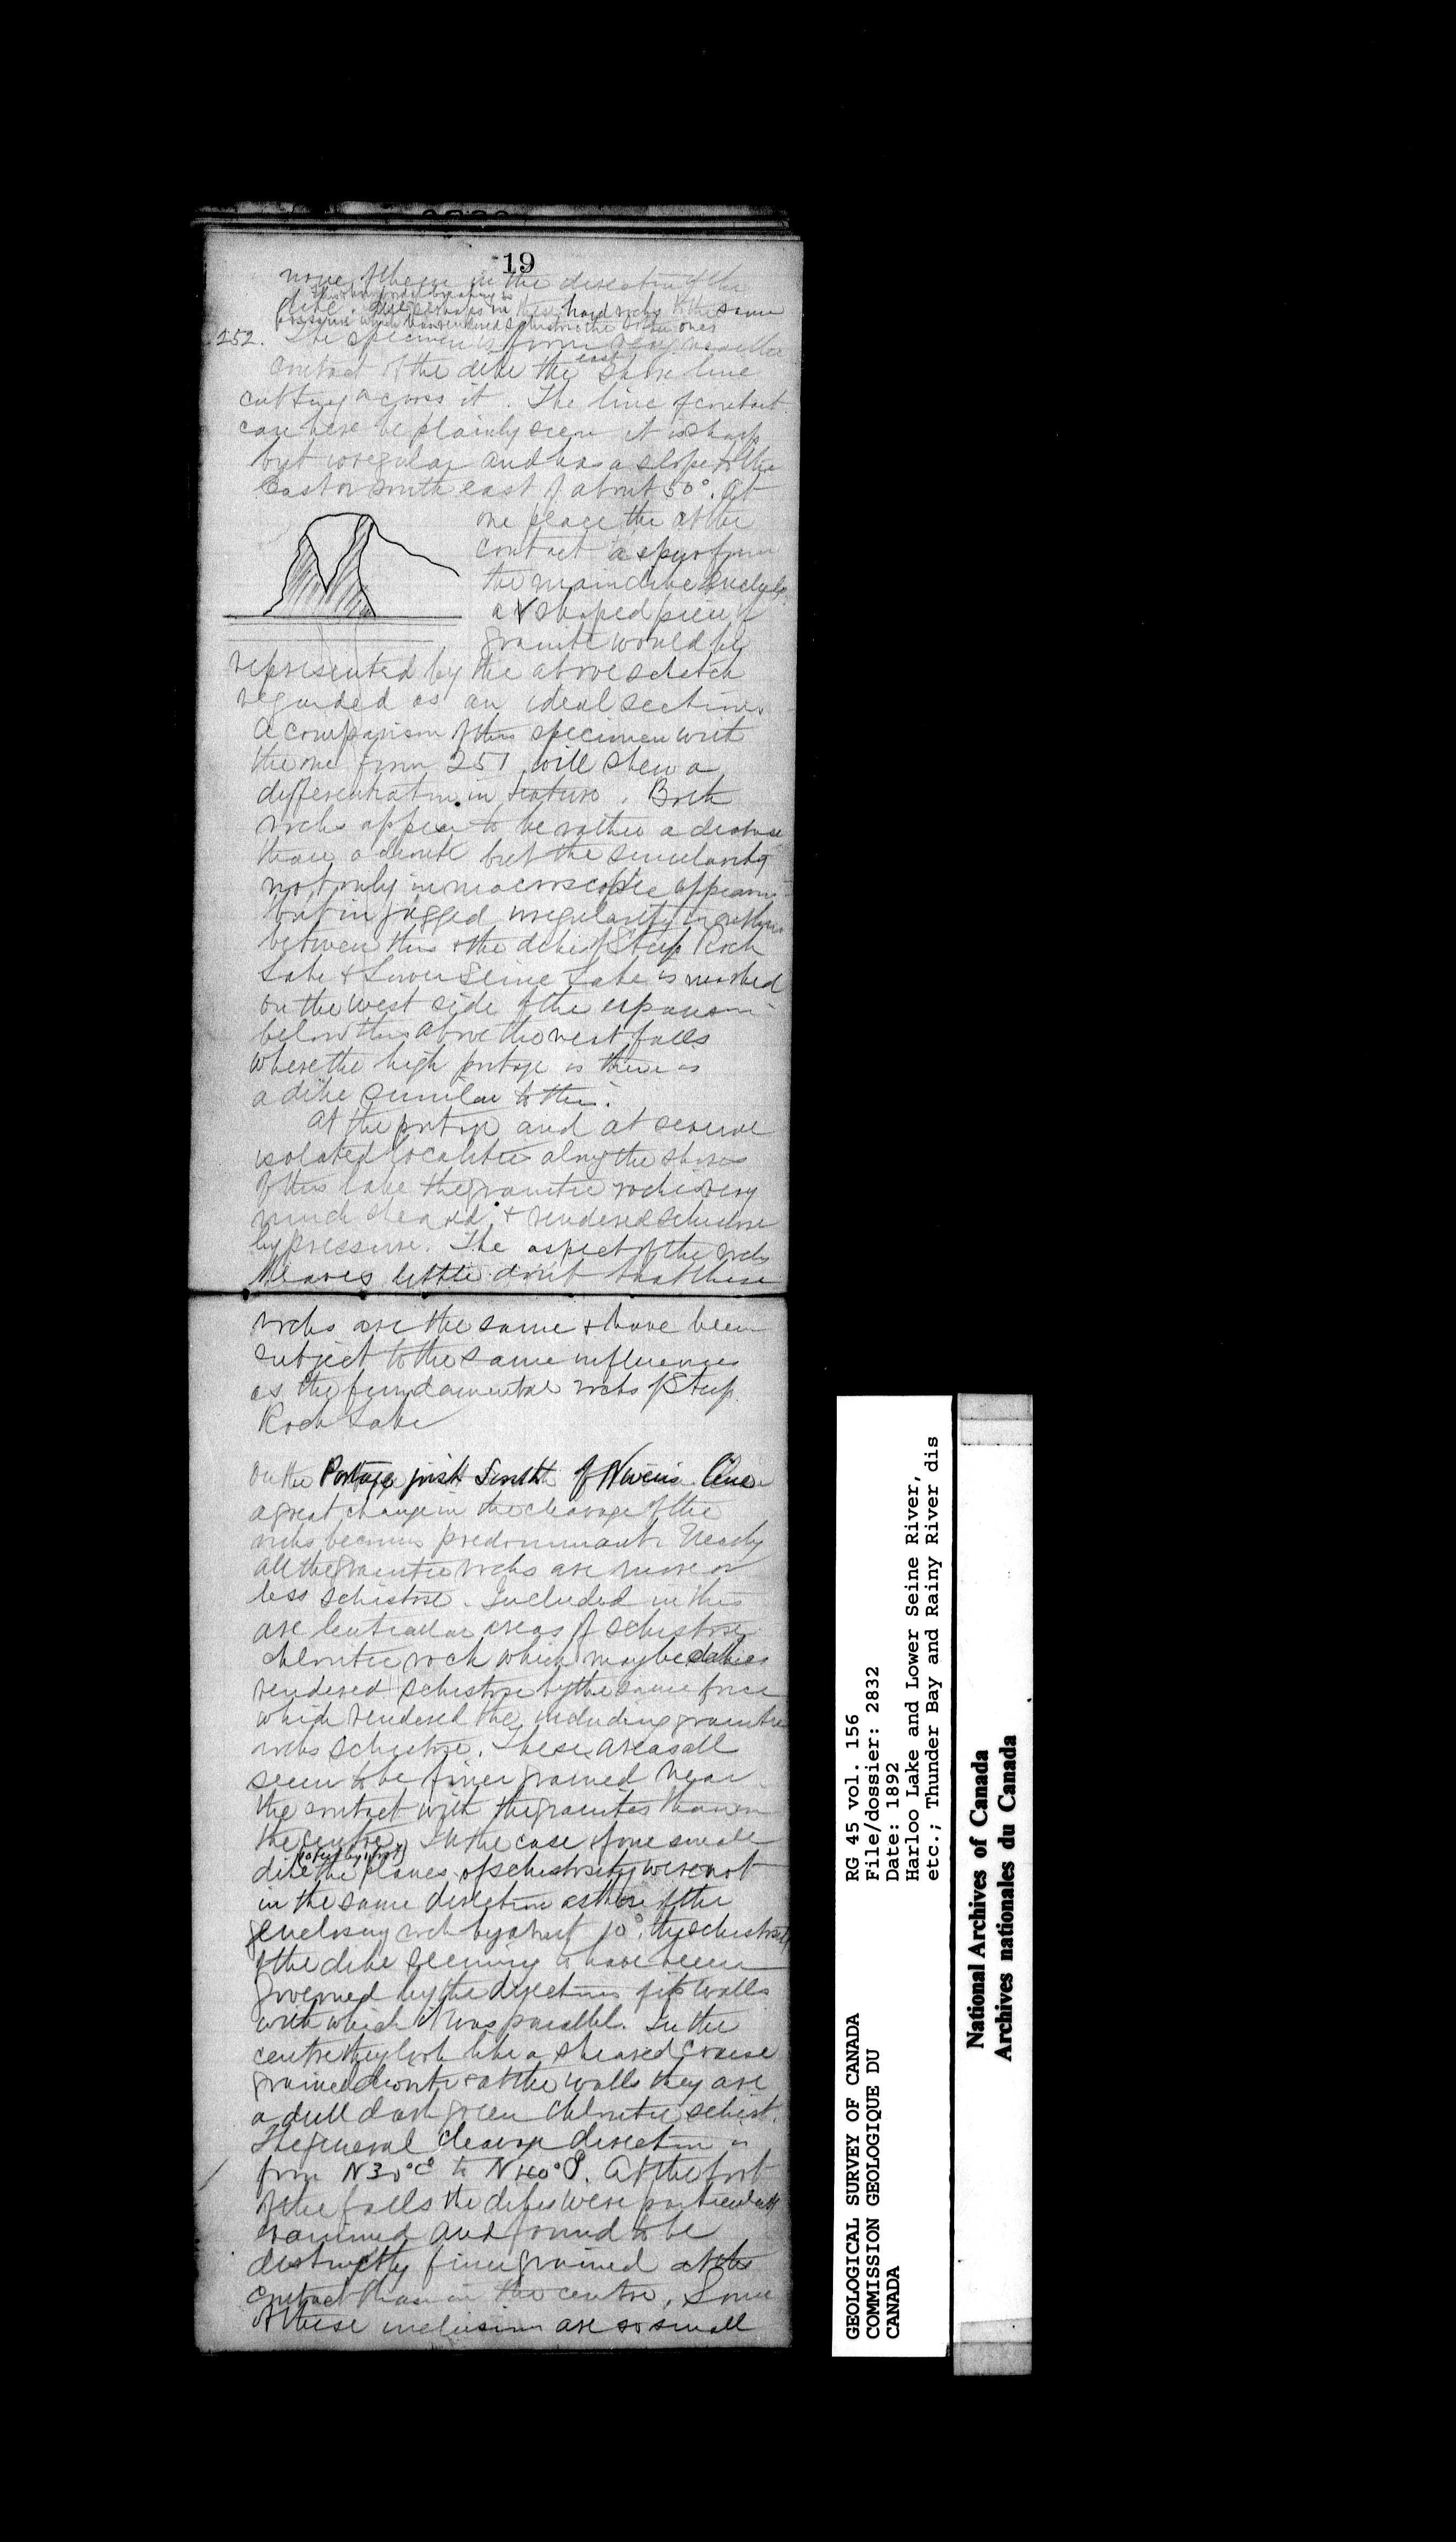 19
none of them in the direction of the
dike. This horizontal breaking is
due perhaps in these hard rocks to the same
pressure which has rendered schistose the other ones
252. The specimen is from near the
contact of the dike the east shore line
cutting across it. The line of contact
can here be plainly seen it is sharp
but irregular and has a slope to the
East or south east of about 50°. At
one place the at the
contact a spur from
the main dike
a V shaped piece of
granite would be
represented by the above sketch
regarded as an ideal section.
A comparison of this specimen with
the one from 251 will shew a
differentiation in texture. Both
rocks appear to be rather a diabase
than a diorite but the similarity
not only in macroscopic appearance
but in jagged irregularity in outline
between this & the dikes of Steep Rock
Lake & Lower Seine Lake is marked
on the west side of the expansion
below this above the next falls
where the high portage is there is
a dike similar to this.
At the portage and at several
isolated localities along the shores
of this lake the granitic rock is very
much sheared & rendered schistose
by pressure. The aspect of the rocks
leaves little doubt that these
rocks are the same & have been
subject to the same influences
as the fundamental rocks of Steep
Rock Lake
On the Portage just South of Niven's line
a great change in the cleavage of the
rocks becomes predominant. Nearly
all the granitic rocks are more or
less schistose. Included in this
are lenticular areas of schistose
chloritic rock which may be dikes
rendered schistose by the same force
which rendered the including granitic
rocks schistose. These areas all
seem to be finer grained near
the contact with the granites than in
the centre. In the case of one small
dike (10 feet by 1 foot) the planes of schistosity were not
in the same direction as those of the
enclosing rock by about 10°, the schistosity
of the dike seeming to have been
governed by the direction of its walls
with which it was parallel. In the
centre they look like a sheared coarse
grained diorite & at the walls they are
a dull dark green chloritic schist.
The general cleavage direction is
from N 30° E to N 40° E. At the foot
of the falls the dikes were particularly
examined and found to be
distinctly finer grained at the
contact than in the centre. Some
of these inclusions are so small
GEOLOGICAL SURVEY OF CANADA
COMMISSION GEOLOGIQUE DU
CANADA
RG 45 vol. 156
File/dossier: 2832
Date: 1892
Harloo Lake and Lower Seine River,
etc.; Thunder Bay and Rainy River dis
National Archives of Canada
Archives nationales du Canada